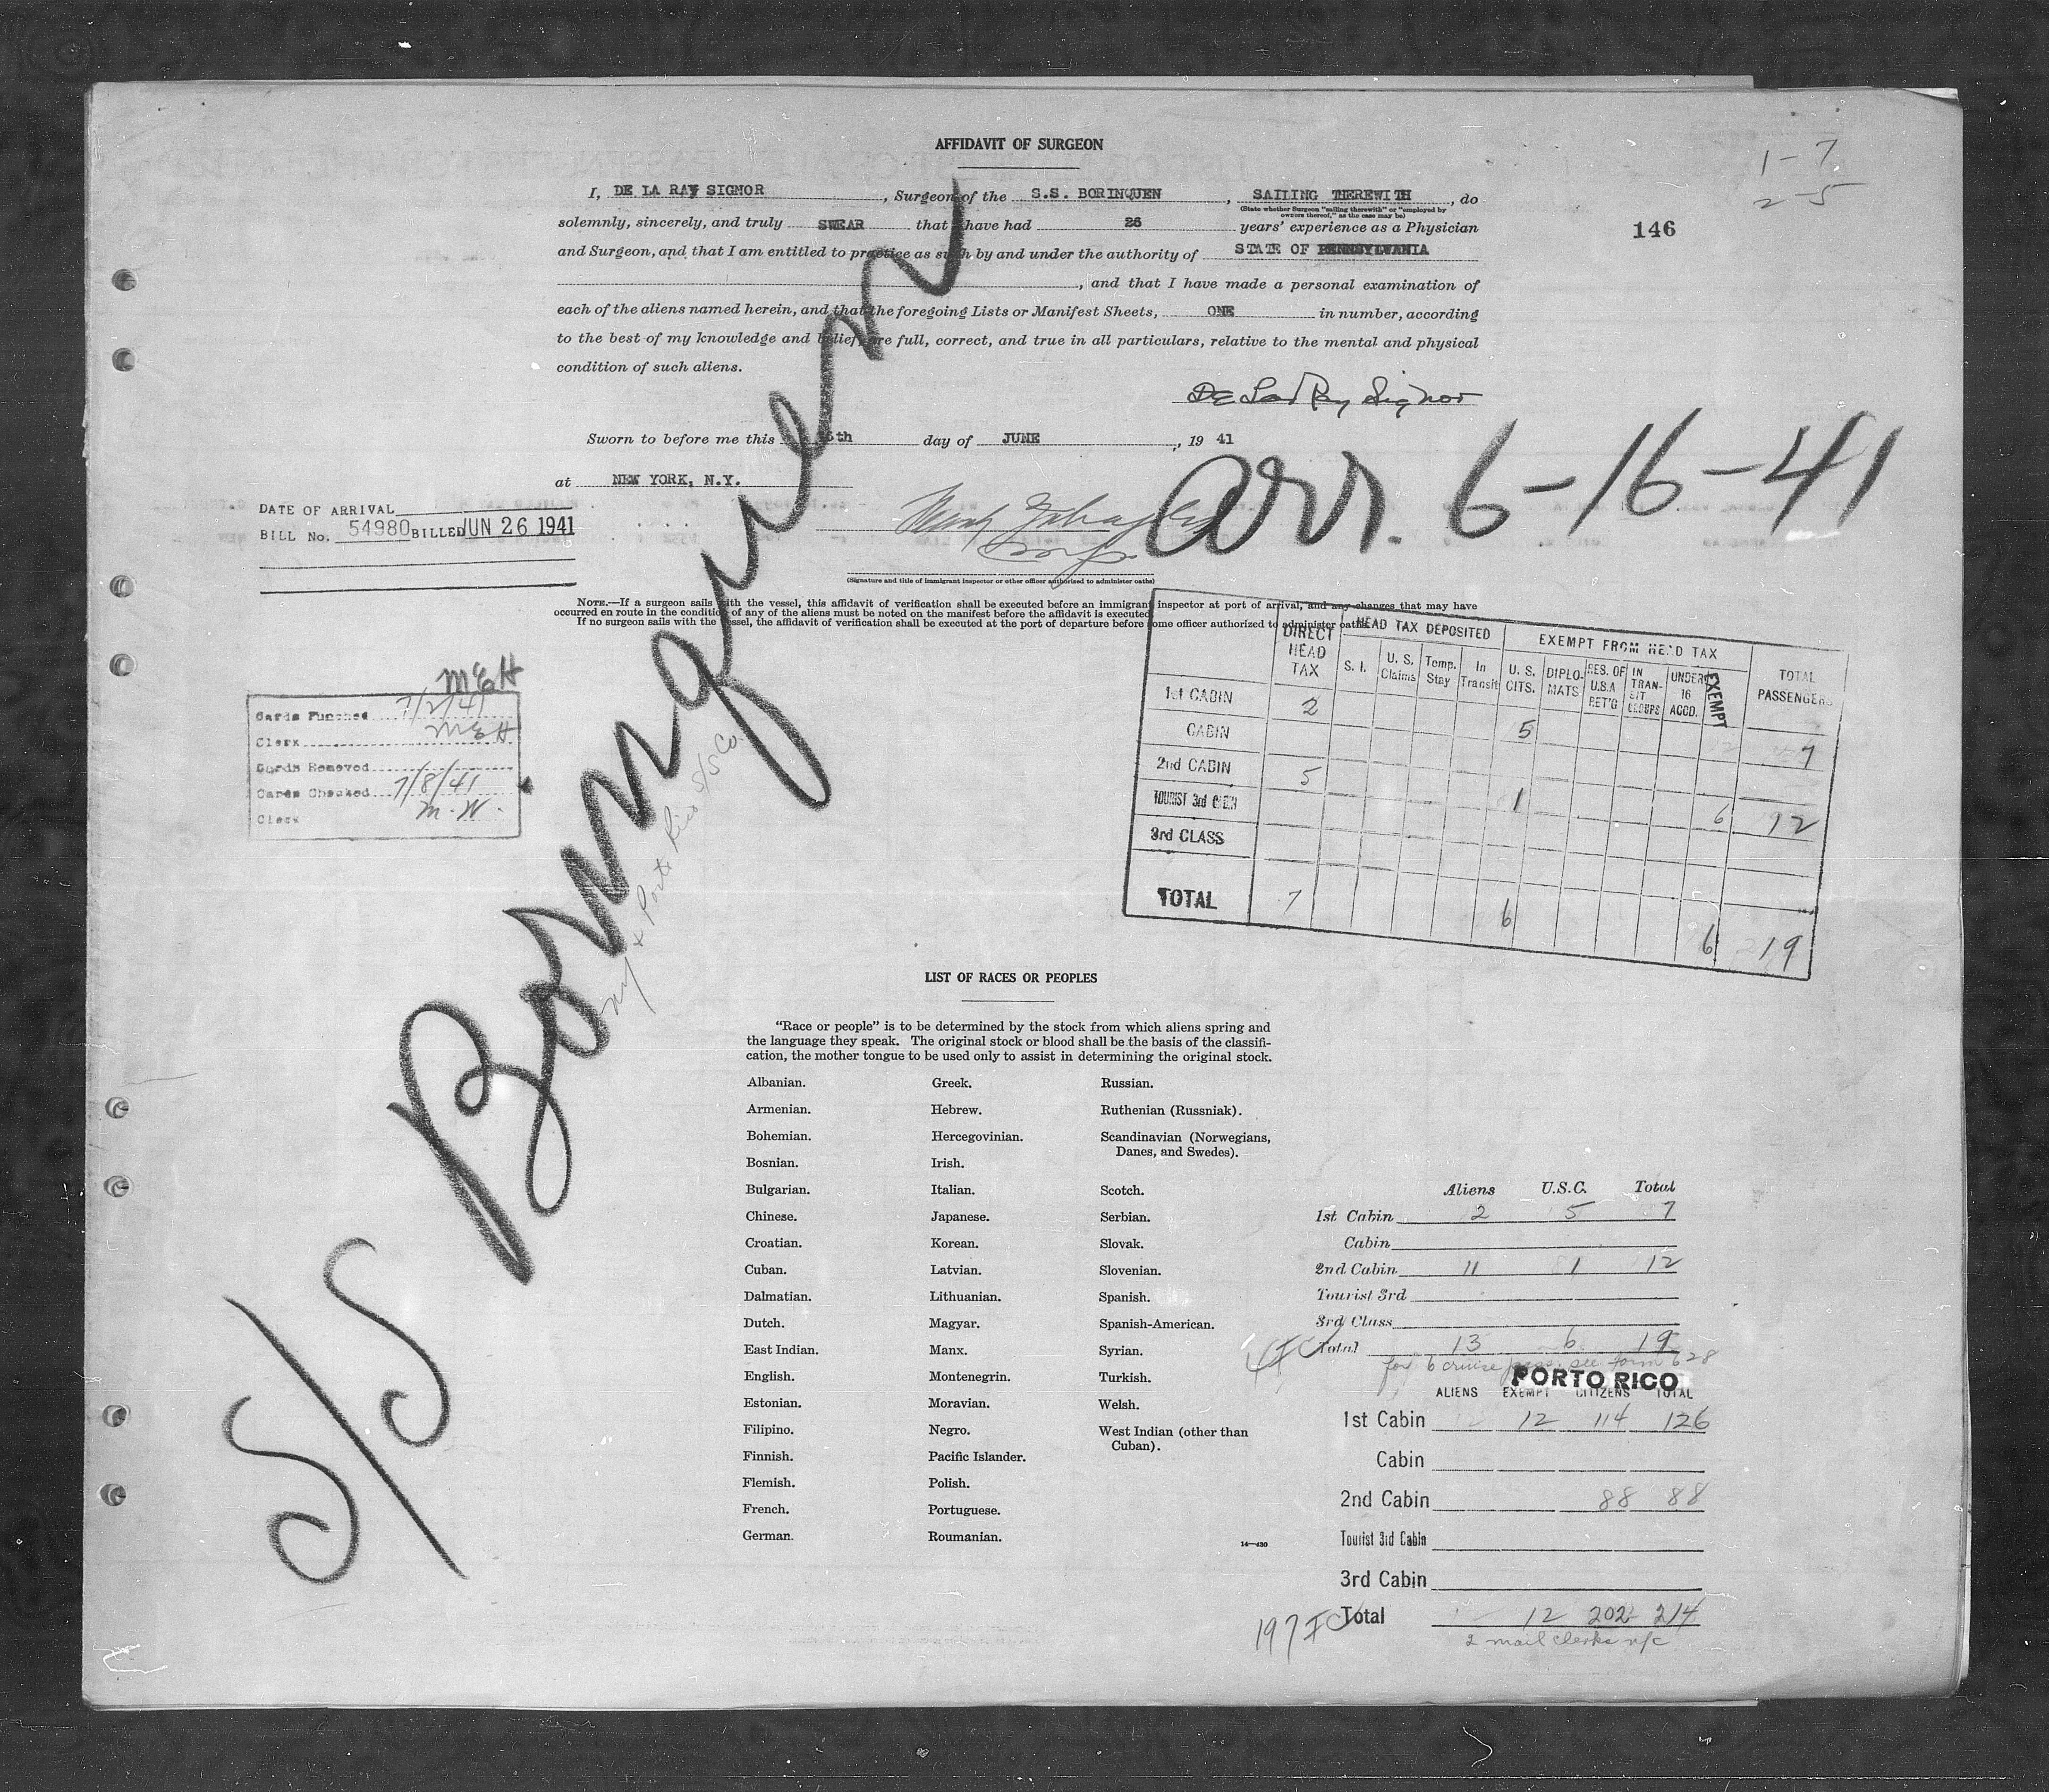 AFFIDAVIT OF SURGEON
1-7
2-5
146
I, DE LA RAY SIGNOR, Surgeon of the S.S. BORINQUEN, SAILING THEREWITH, do
(State whether Surgeon "sailing therewith" or "employed by owners thereof," as the case may be)
solemnly, sincerely, and truly SWEAR that I have had 26 years' experience as a Physician
and Surgeon, and that I am entitled to practice as such by and under the authority of STATE OF PENNSYLVANIA
, and that I have made a personal examination of
each of the aliens named herein, and that the foregoing Lists or Manifest Sheets, ONE in number, according
to the best of my knowledge and belief, are full, correct, and true in all particulars, relative to the mental and physical
condition of such aliens.
De La Ray Signor
Sworn to before me this 16th day of JUNE, 19 41
at NEW YORK, N.Y.
arr. 6-16-41
DATE OF ARRIVAL
BILL No. 54980 BILLED JUN 26 1941
(Signature and title of immigrant inspector or other officer authorized to administer oaths)
NOTE.—If a surgeon sails with the vessel, this affidavit of verification shall be executed before an immigrant inspector at port of arrival, and any changes that may have
occurred en route in the condition of any of the aliens must be noted on the manifest before the affidavit is executed.
If no surgeon sails with the vessel, the affidavit of verification shall be executed at the port of departure before some officer authorized to administer oaths.
MEH
Cards Punched 7/2/41
Clerk MEH
Cards Removed
Cards Checked 7/8/41
Clerk M.W.
S/S Borinquen
NY & Porto Rico S/S Co.
DIRECT HEAD TAX
HEAD TAX DEPOSITED
EXEMPT FROM HEAD TAX
TOTAL PASSENGERS
S. I.
U. S. Claims
Temp. Stay
In Transit
U. S. CITS.
DIPLO-MATS
RES. OF U.S.A RET'G
IN TRAN-SIT GROUPS
UNDER 16 ACCD.
EXEMPT
1st CABIN 2 5 7
CABIN
2nd CABIN 5 1 6 12
TOURIST 3rd CABIN
3rd CLASS
TOTAL 7 6 6 19
LIST OF RACES OR PEOPLES
"Race or people" is to be determined by the stock from which aliens spring and
the language they speak. The original stock or blood shall be the basis of the classifi-
cation, the mother tongue to be used only to assist in determining the original stock.
Albanian.
Armenian.
Bohemian.
Bosnian.
Bulgarian.
Chinese.
Croatian.
Cuban.
Dalmatian.
Dutch.
East Indian.
English.
Estonian.
Filipino.
Finnish.
Flemish.
French.
German.
Greek.
Hebrew.
Hercegovinian.
Irish.
Italian.
Japanese.
Korean.
Latvian.
Lithuanian.
Magyar.
Manx.
Montenegrin.
Moravian.
Negro.
Pacific Islander.
Polish.
Portuguese.
Roumanian.
Russian.
Ruthenian (Russniak).
Scandinavian (Norwegians,
Danes, and Swedes).
Scotch.
Serbian.
Slovak.
Slovenian.
Spanish.
Spanish-American.
Syrian.
Turkish.
Welsh.
West Indian (other than
Cuban).
14—430
Aliens U.S.C. Total
1st Cabin 2 5 7
Cabin
2nd Cabin 11 1 12
Tourist 3rd
3rd Class
Total 13 6 19
for 6 cruise pass. see form 628
PORTO RICO
ALIENS EXEMPT CITIZENS TOTAL
1st Cabin 12 114 126
Cabin
2nd Cabin 88 88
Tourist 3rd Cabin
3rd Cabin
Total 12 202 214
2 mail clerks n/c